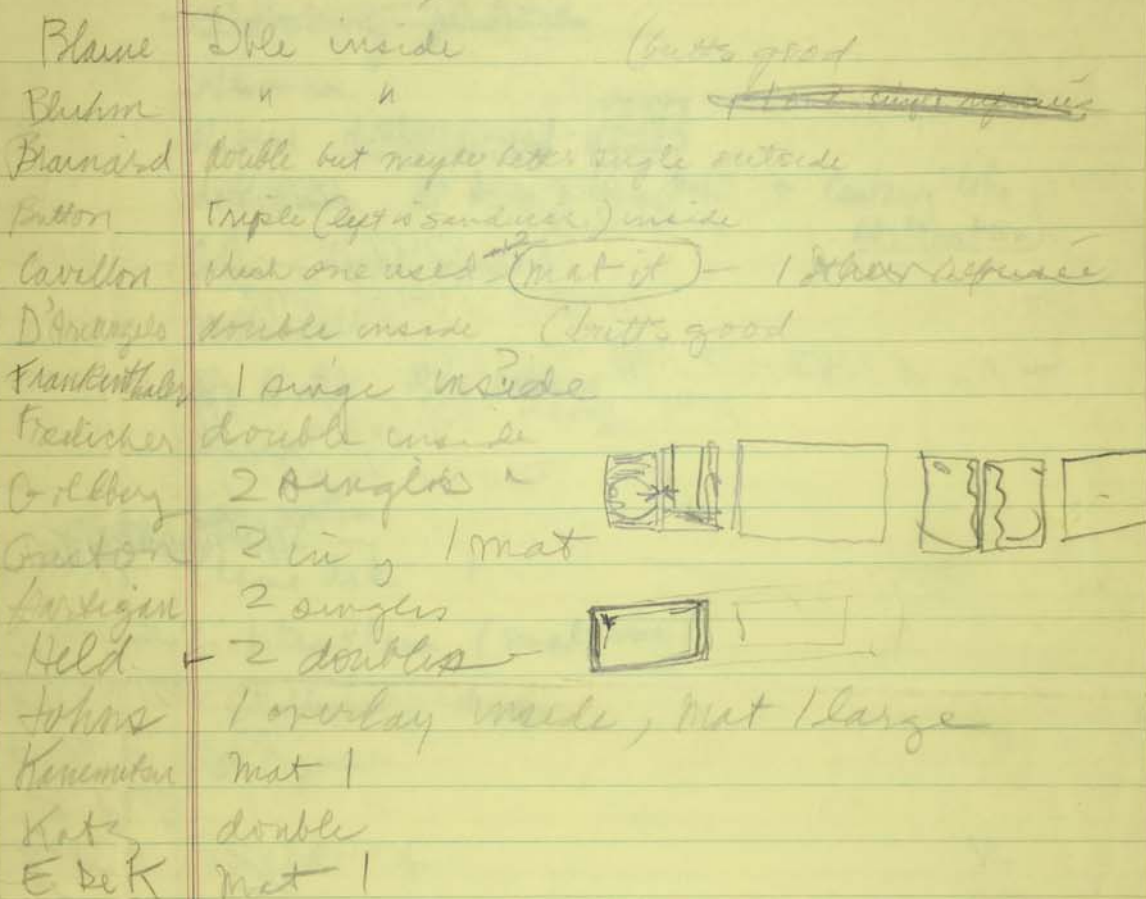 Blaine Dble inside (butts good
Bluhm " "
Brainard double but maybe better single outside
Button Triple (left is sandwich) inside
Cavallon which one used (mat it) - 1
D'Arcangelo double inside (butts good
Frankenthaler 1 singe inside ?
Freilicher double inside
Goldberg 2 singles "
Guston 2 in, 1 mat
Hartigan 2 singles
Held 2 doubles -
Johns 1 overlay inside, mat 1 large
Kanemitsu mat 1
Katz double
E De K mat 1